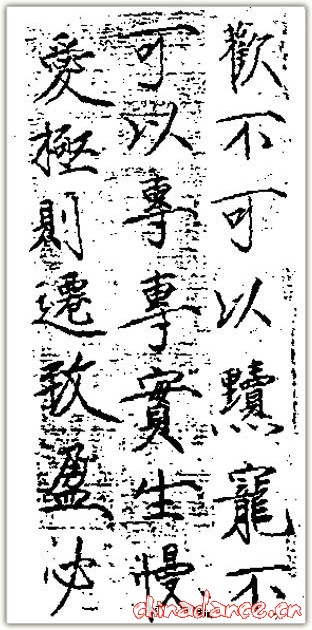 歡不可以黷寵不
可以專專實生慢
愛極則遷致盈必
chinadance.cn